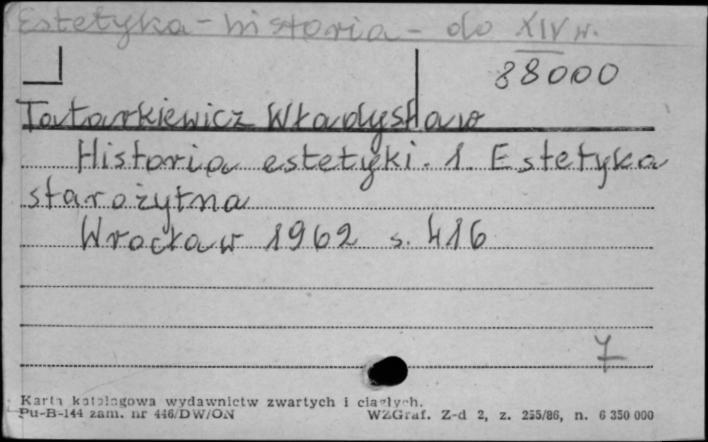 Estetyka - historia - do XIV w.
88000
Tatarkiewicz Władysław
Historia estetyki. 1. Estetyka
starożytna
Wrocław 1962 s. 416
7
Karta katalogowa wydawnictw zwartych i ciągłych.
Pu-B-144 zam. nr 446/DW/ON WZGraf. Z-d 2, z. 255/86, n. 6 350 000